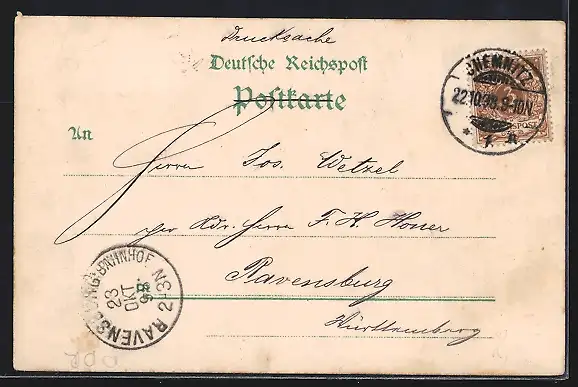 Drucksache
Deutsche Reichspost
Postkarte
CHEMNITZ
22.10.98. 9-10N.
* 1 *
An
Herrn Jos. Wetzel
per Adr. Herrn F. H. Honer
Ravensburg
Württemberg
RAVENSBURG BAHNHOF
23
OKT
98
2-3 N